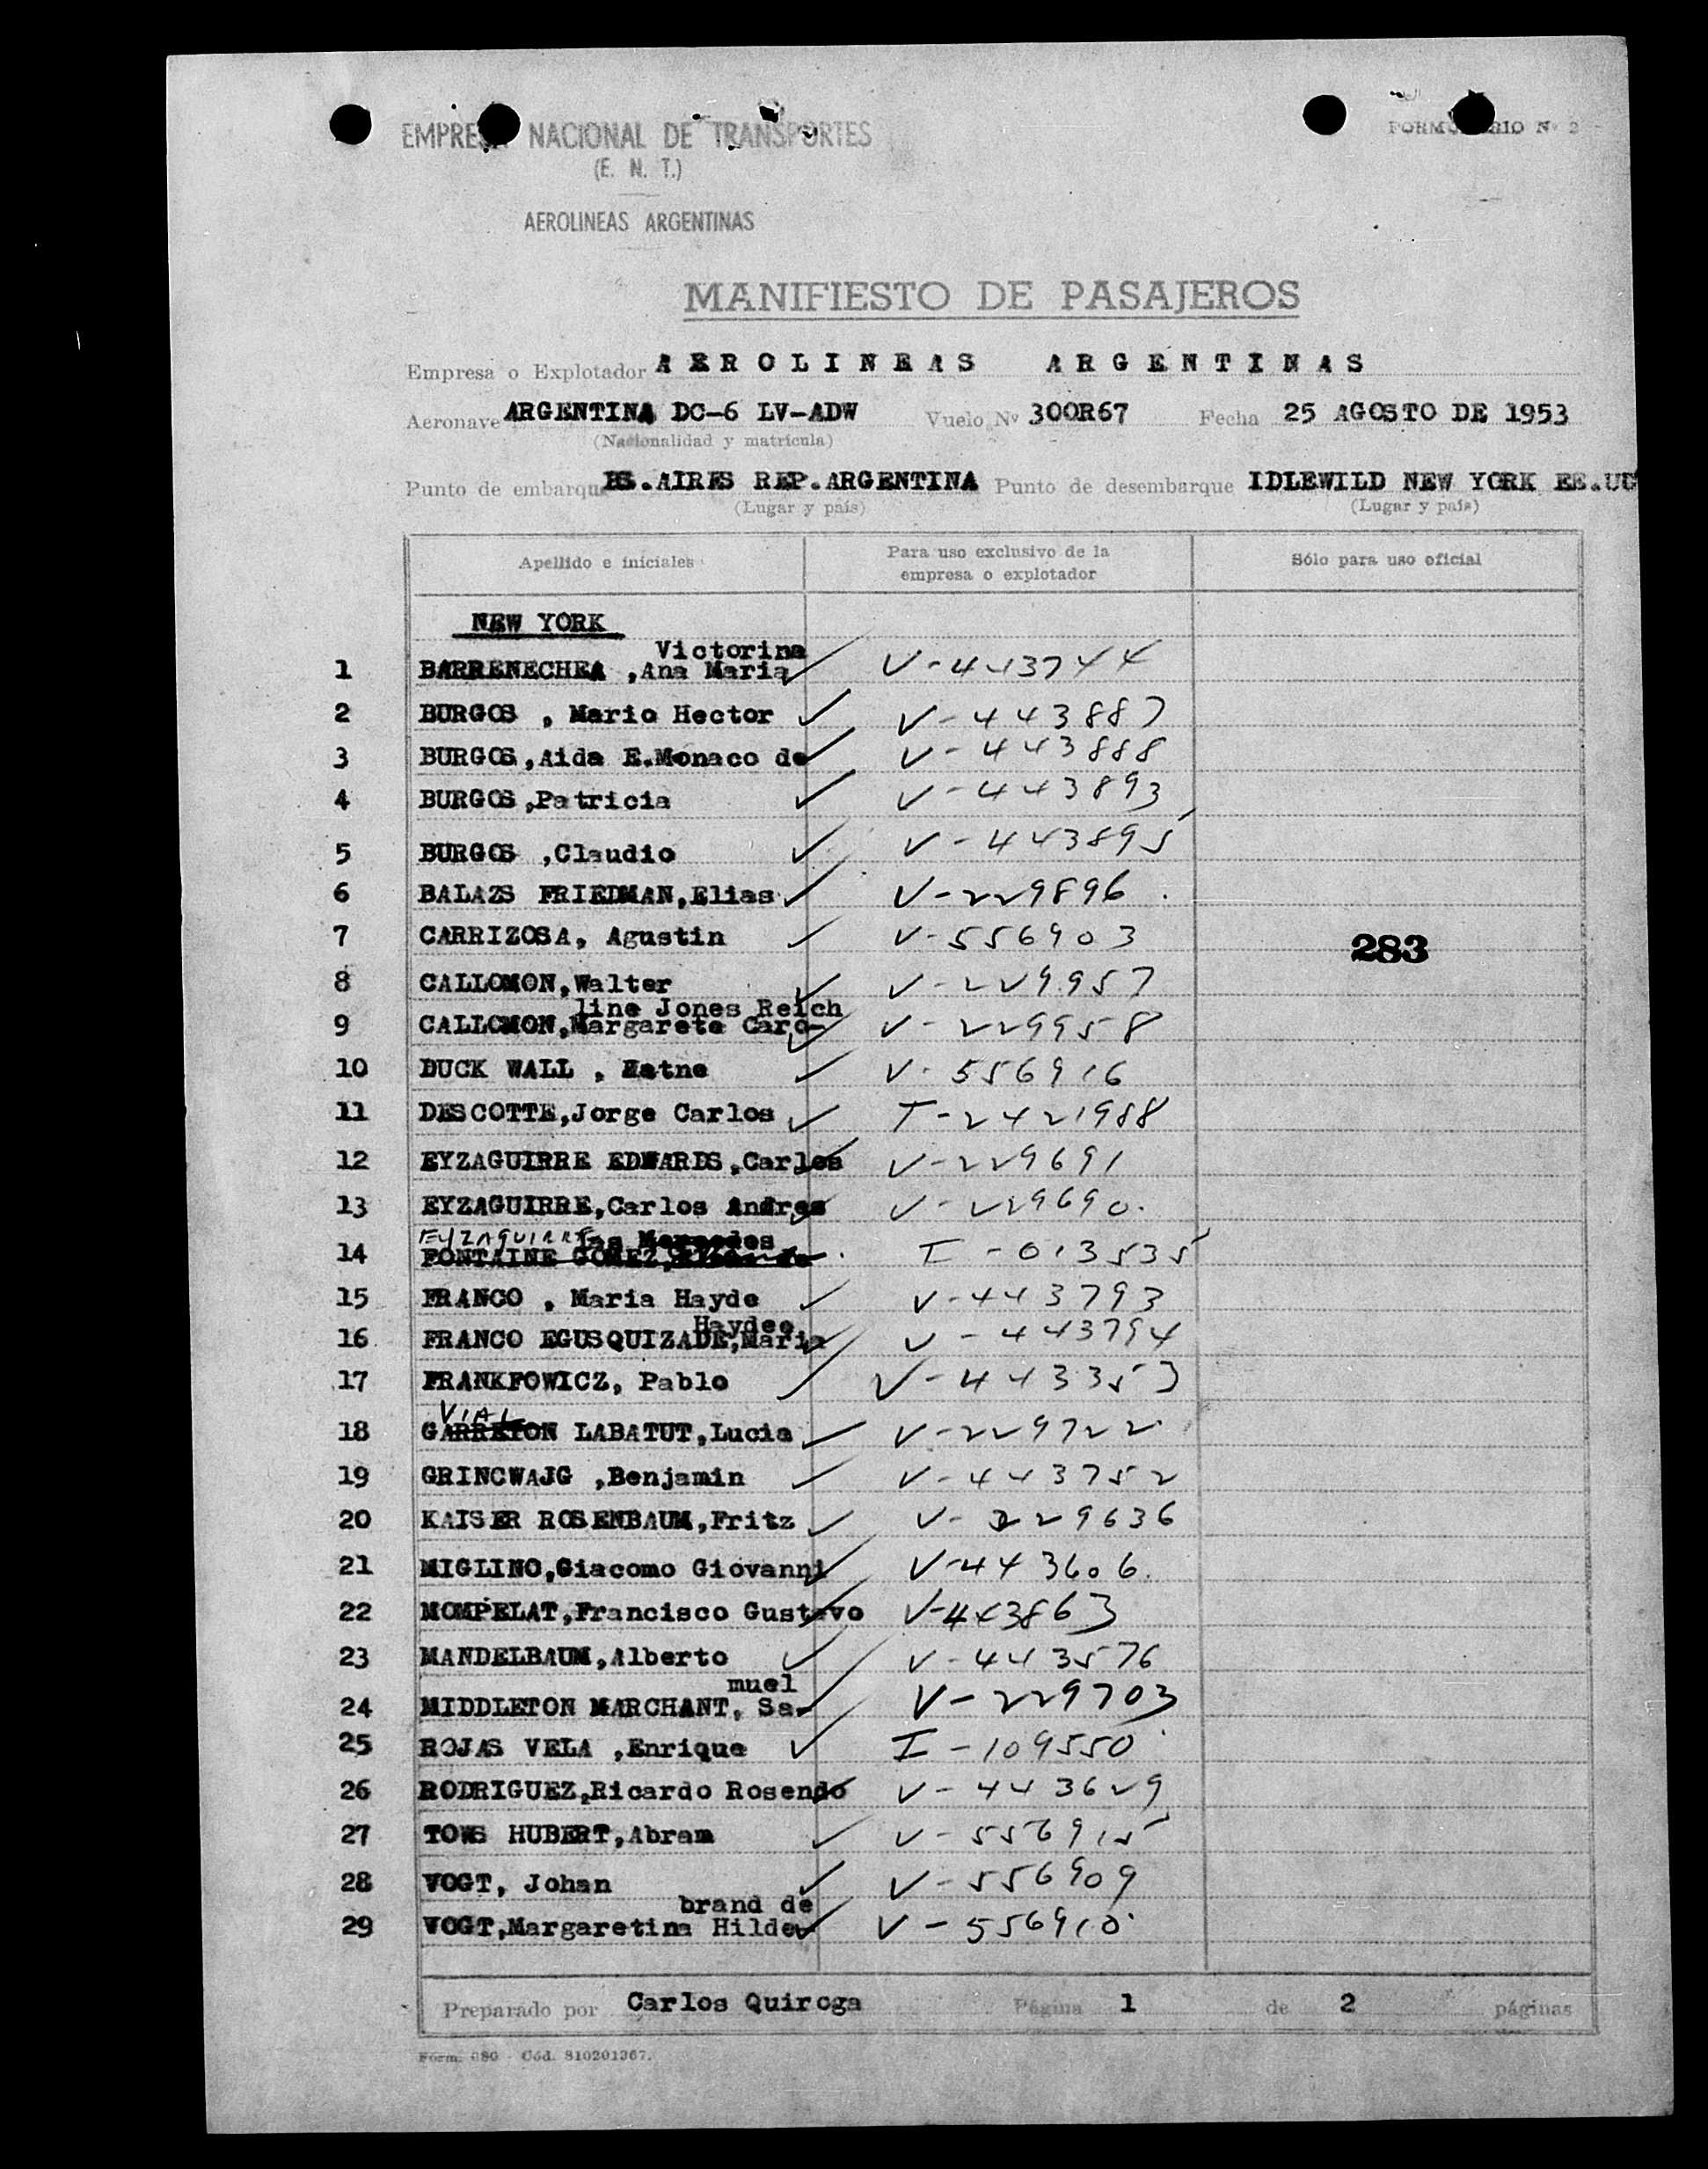 EMPRESA NACIONAL DE TRANSPORTES
(E. N. T.)
AEROLINEAS ARGENTINAS
FORMULARIO Nº 2
MANIFIESTO DE PASAJEROS
Empresa o Explotador AEROLINEAS ARGENTINAS
Aeronave ARGENTINA DC-6 LV-ADW Vuelo Nº 300R67 Fecha 25 AGOSTO DE 1953
(Nacionalidad y matrícula)
Punto de embarque BS.AIRES REP.ARGENTINA Punto de desembarque IDLEWILD NEW YORK EE.UU
(Lugar y país) (Lugar y país)
Apellido e iniciales Para uso exclusivo de la empresa o explotador Sólo para uso oficial
NEW YORK
Victorina
1 BARRENECHEA ,Ana Maria V-443744
2 BURGOS , Mario Hector V-443887
3 BURGOS,Aida E.Monaco de V-443888
4 BURGOS,Patricia V-443893
5 BURGOS ,Claudio V-443895
6 BALAZS FRIEDMAN,Elias V-229896
7 CARRIZOSA, Agustin V-556903
283
8 CALLOMON,Walter V-229957
line Jones Reich
9 CALLOMON,Margarete Caro- V-229958
10 DUCK WALL , Eatne V-556916
11 DESCOTTE,Jorge Carlos T-2421988
12 EYZAGUIRRE EDWARDS,Carlos V-229691
13 EYZAGUIRRE,Carlos Andres V-229690
EYZAGUIRRE las Mercedes
14 FONTAINE GOMEZ, I-013535
15 FRANCO , Maria Hayde V-443793
Haydee
16 FRANCO EGUSQUIZADE,Maria V-443794
17 FRANKFOWICZ, Pablo V-443353
VIAL
18 GARRETON LABATUT,Lucia V-229722
19 GRINCWAJG ,Benjamin V-443752
20 KAISER ROSENBAUM,Fritz V-229636
21 MIGLINO,Giacomo Giovanni V-443606
22 MOMPELAT,Francisco Gustavo V-443863
23 MANDELBAUM,Alberto V-443576
muel
24 MIDDLETON MARCHANT, Sa- V-229703
25 ROJAS VELA ,Enrique I-109550
26 RODRIGUEZ,Ricardo Rosendo V-443629
27 TOWS HUBERT,Abram V-556915
28 VOGT, Johan V-556909
brand de
29 VOGT,Margaretina Hilde- V-556910
Preparado por Carlos Quiroga Página 1 de 2 páginas
Form. 080 - Cód. 810201367.